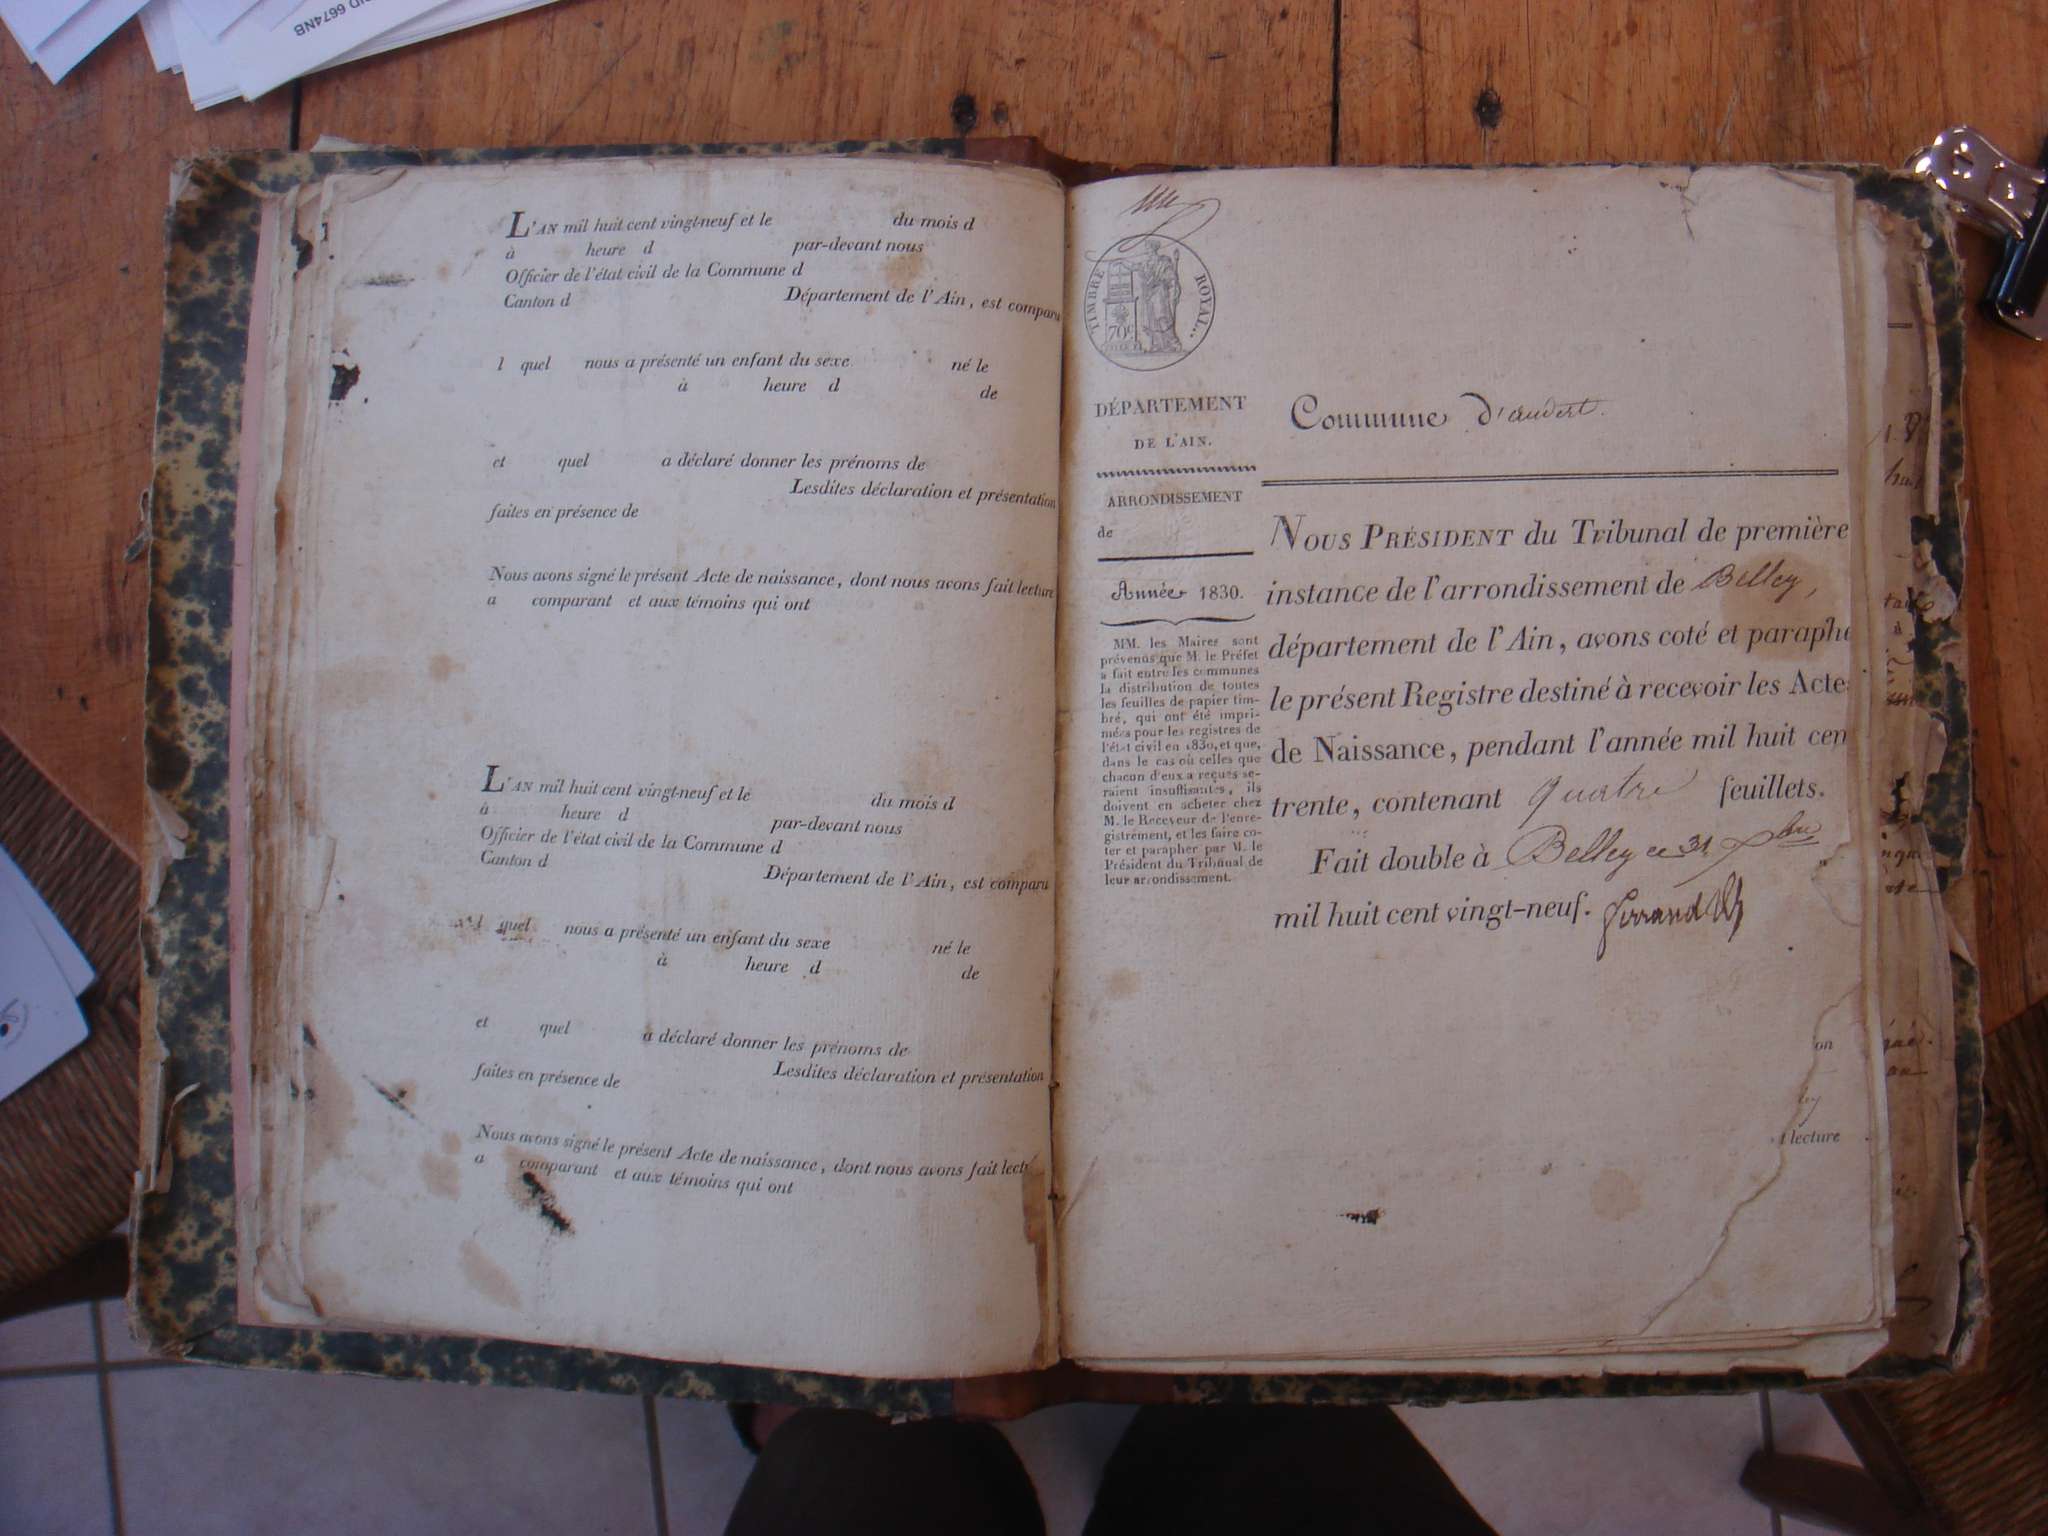 6674NB
L'AN mil huit cent vingt-neuf et le du mois d
à heure d par-devant nous
Officier de l'état civil de la Commune d
Canton d Département de l'Ain, est comparu
l quel nous a présenté un enfant du sexe né le
à heure d de
et quel a déclaré donner les prénoms de
Lesdites déclaration et présentation
faites en présence de
Nous avons signé le présent Acte de naissance, dont nous avons fait lecture
a comparant et aux témoins qui ont
L'AN mil huit cent vingt-neuf et le du mois d
à heure d par-devant nous
Officier de l'état civil de la Commune d
Canton d Département de l'Ain, est comparu
l quel nous a présenté un enfant du sexe né le
à heure d de
et quel a déclaré donner les prénoms de
Lesdites déclaration et présentation
faites en présence de
Nous avons signé le présent Acte de naissance, dont nous avons fait lectu
a comparant et aux témoins qui ont
TIMBRE ROYAL
70c
DÉPARTEMENT
DE L'AIN.
ARRONDISSEMENT
de
Année 1830.
MM. les Maires sont
prévenus que M. le Préfet
a fait entre les communes
la distribution de toutes
les feuilles de papier tim-
bré, qui ont été impri-
mées pour les registres de
l'état civil en 1830, et que,
dans le cas où celles que
chacun d'eux a reçues se-
raient insuffisantes, ils
doivent en acheter chez
M. le Receveur de l'enre-
gistrement, et les faire co-
ter et parapher par M. le
Président du Tribunal de
leur arrondissement.
Commune d'andert.
NOUS PRÉSIDENT du Tribunal de première
instance de l'arrondissement de Belley,
département de l'Ain, avons coté et paraphé
le présent Registre destiné à recevoir les Actes
de Naissance, pendant l'année mil huit cen
trente, contenant quatre feuillets.
Fait double à Belley ce 31 Xbre
mil huit cent vingt-neuf.
on
lecture